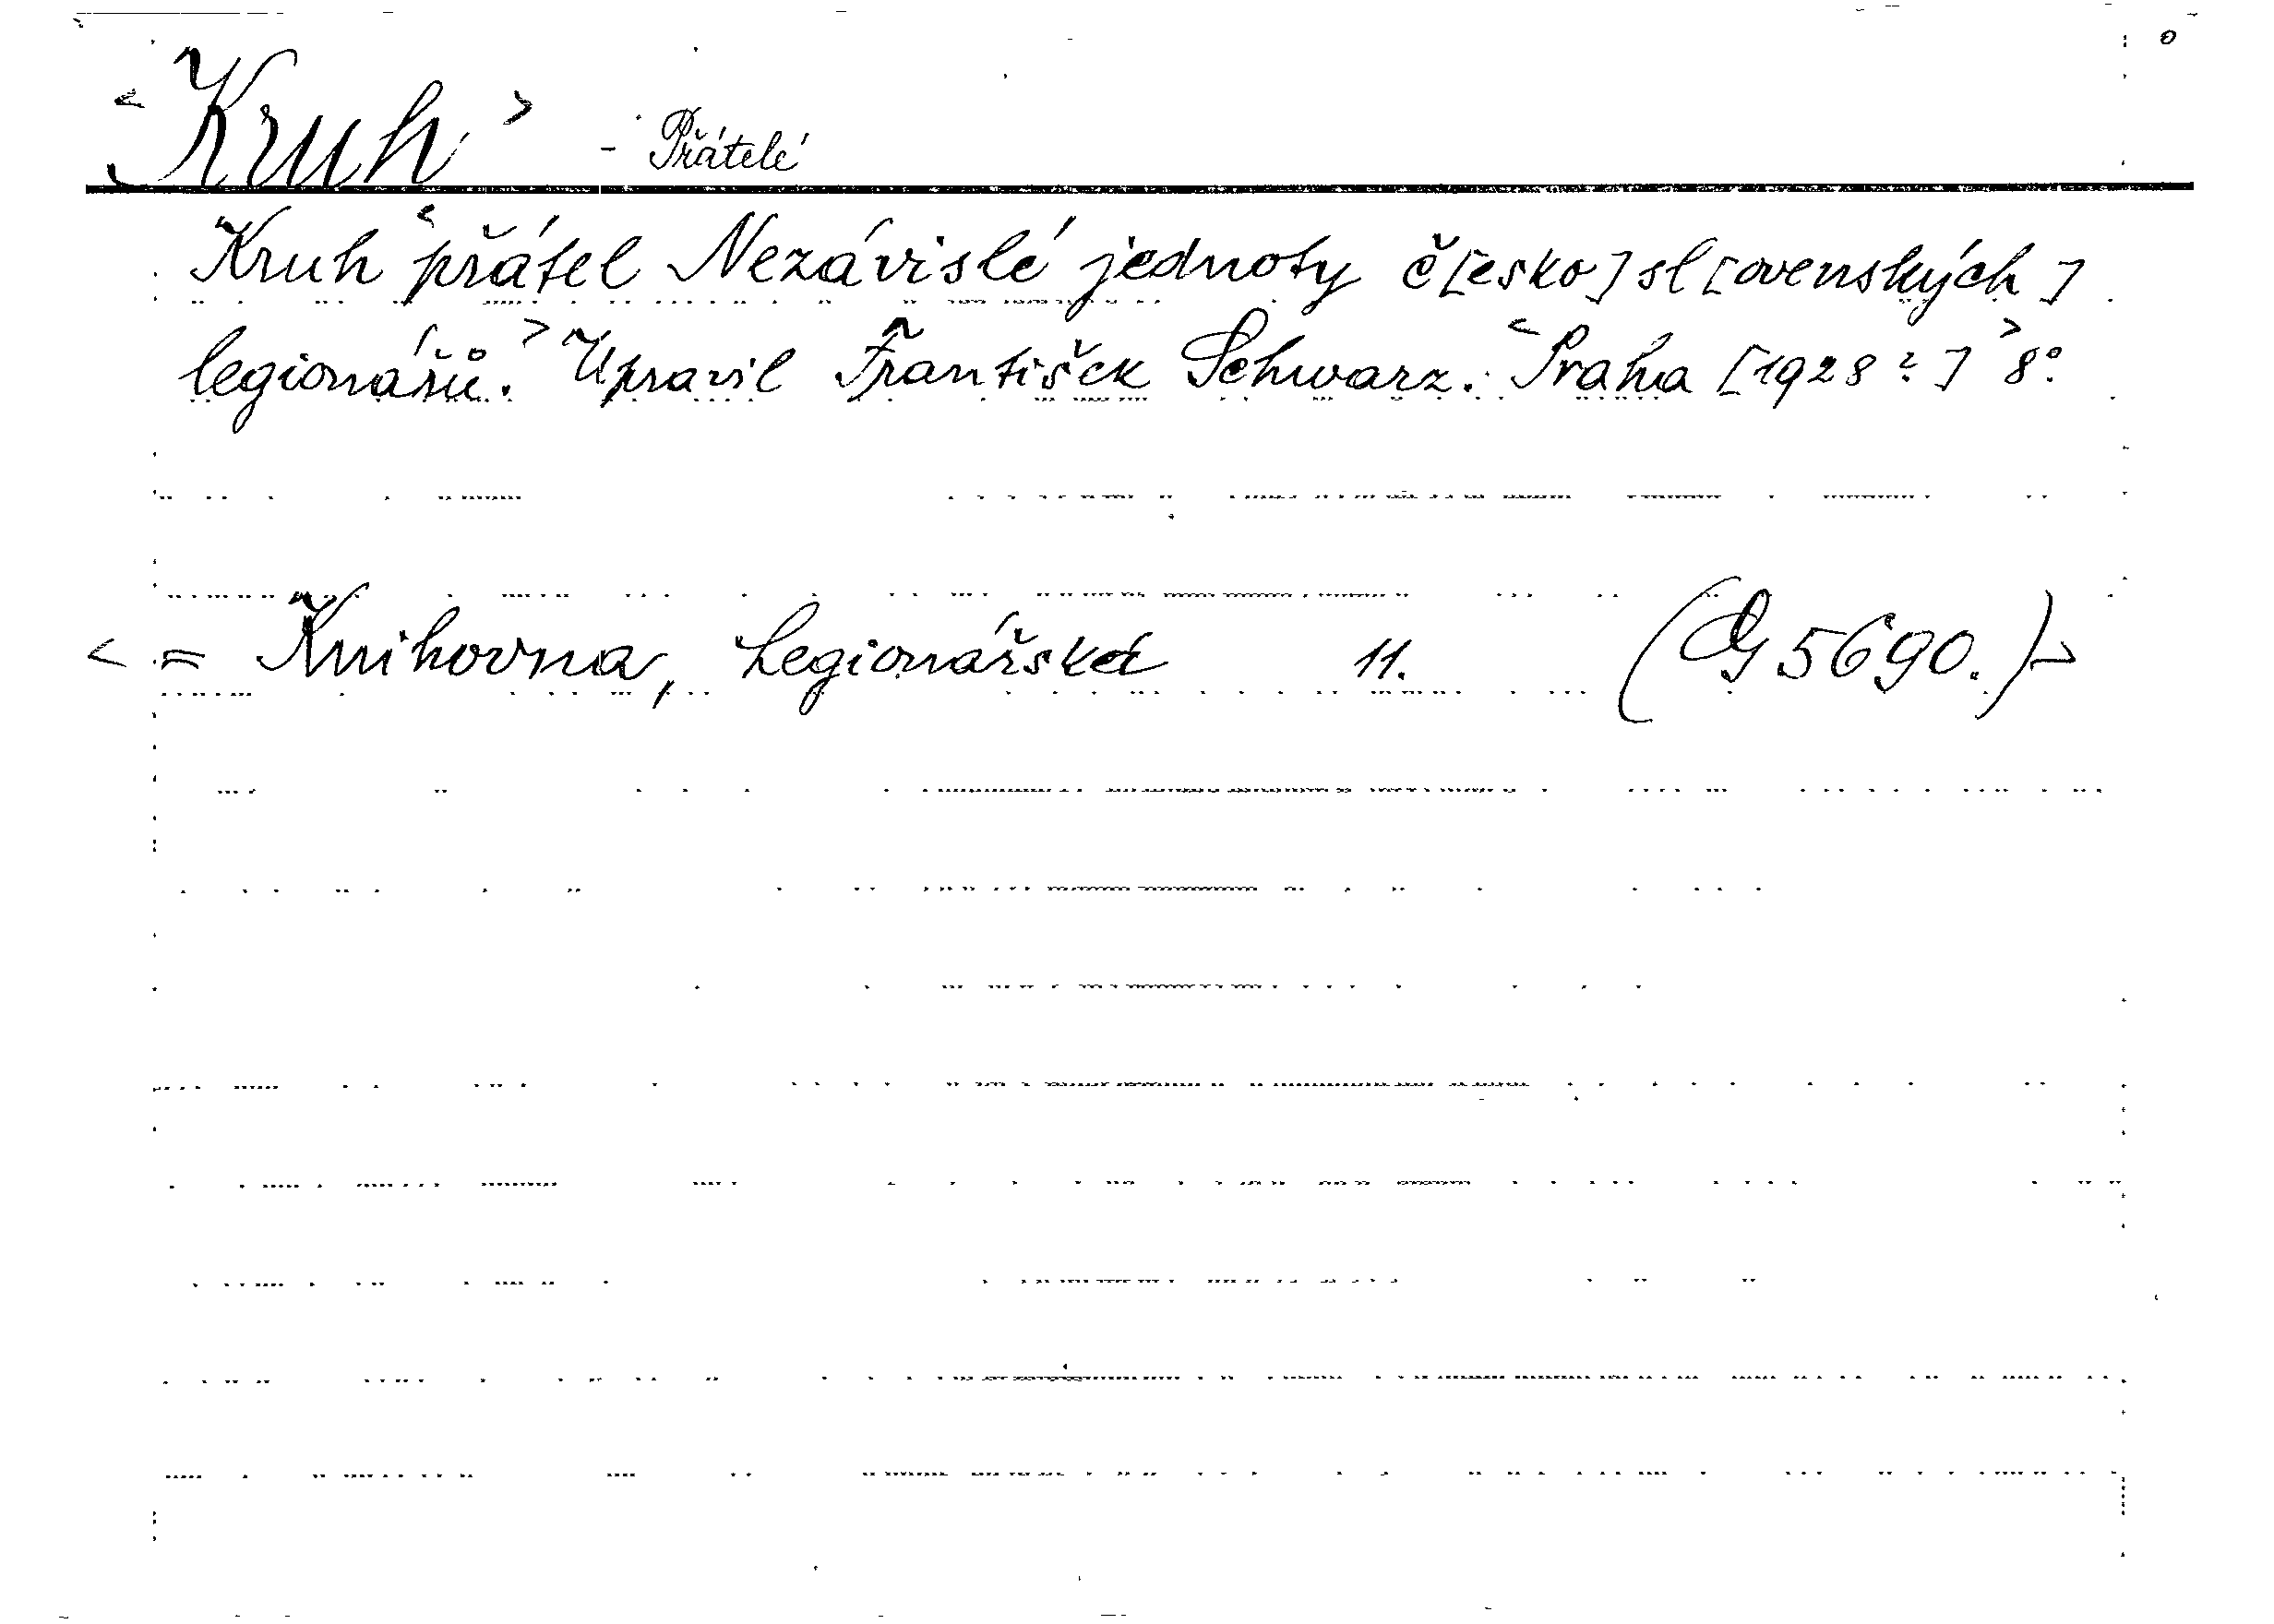 <Kruh> - Přátelé
Kruh <přátel Nezávislé jednoty č[esko]sl[ovenských]
legionářů.> Upravil František Schwarz. <Praha [1928?]> 8°.
< = Knihovna, Legionářská 11. (G 5690.)>